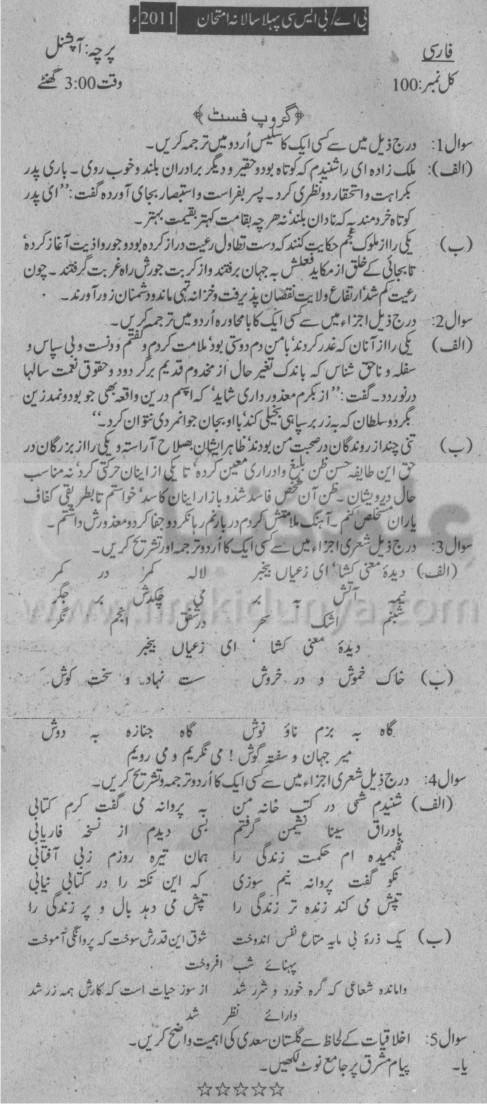 بی اے/بی ایس سی پہلا سالانہ امتحان 2011ء
فارسی پرچہ: آپشنل
کل نمبر: 100 وقت 3:00 گھنٹے
﴿گروپ فسٹ﴾
سوال1: درج ذیل میں سے کسی ایک کا سلیس اُردو میں ترجمہ کریں۔
(الف): ملک زادہ ای را شنیدم کہ کوتاہ بود و حقیر و دیگر برادران بلند و خوب روی۔ باری پدر
بکراہت و استحقار در و نظری کرد۔ پسر بفراست و استبصار بجای آوردہ گفت: ''ای پدر
کوتاہ خردمند بہ کہ نادان بلند' نہ ہر چہ بقامت کہتر بقیمت بہتر۔
(ب) یکی را از ملوک عجم حکایت کنند کہ دست تطاول رعیت دراز کردہ بود و جور و اذیت آغاز کردہ'
تا بجائی کہ خلق از مکاید فعلش بہ جہان برفتند و از کربت جورش راہ غربت گرفتند۔ چون
رعیت کم شد' ارتفاع ولایت نقصان پذیرفت و خزانہ تہی ماند و دشمنان زور آورند۔
سوال2: درج ذیل اجزاء میں سے کسی ایک کا بامحاورہ اُردو میں ترجمہ کریں۔
(الف) یکی را از آنان کہ غدر کردند' با من دم دوستی بود' ملامت کردم و گفتم و دنست و بی سپاس و
سفلہ و ناحق شناس کہ باندک تغیر حال از مخدوم قدیم برگردد و حقوق نعمت سالہا
در نوردد۔ گفت: ''از بکرم معذور داری شاید' کہ اسپم درین واقعہ بھی جو بود و نمد زین
بگرد و سلطان کہ بہ زر بر سپاہی بخیلی کند' با او بجان جوانمردی نتوان کرد۔''
(ب) تنی چند از روندگان در صحبت من بودند' ظاہر ایشان بصلاح آراستہ و یکی را از بزرگان در
حق این طایفہ حسن ظن بلیغ و ادراری معین کردہ' تا یکی از اینان حرکتی کرد' نہ مناسب
حال درویشان۔ ظن آن شخص فاسد شد و بازار اینان کاسد' خواستم تا بطریقی کفاف
یاران مستخلص کنم۔ آہنگ ملامتش کردم دربانم رہا نکرد و جفا کرد و معذورش داشتم۔
سوال3: درج ذیل شعری اجزاء میں سے کسی ایک کا اُردو ترجمہ اور تشریح کریں۔
(الف) دیدۂ معنی کشا' ای زعیاں بیخبر لالہ کمر در کمر
نیمہ آتش بہ بر می چکدش بر جگر
شبنم اشک سحر در شفق انجم نگر
دیدۂ معنی کشا' ای زعیاں بیخبر
(ب) خاک خموش و در خروش ست نہاد و سخت کوش
گاہ بہ بزم ناؤ نوش گاہ جنازہ بہ دوش
میر جہان و سفتہ گوش! می نگریم و می رویم
سوال4: درج ذیل شعری اجزاء میں سے کسی ایک کا اُردو ترجمہ و تشریح کریں۔
(الف) شنیدم شمی در کتب خانہ من بہ پروانہ می گفت کرم کتابی
باوراق سینا نشیمن گرفتم بسی دیدم از نسخہ فاریابی
نفہمیدہ ام حکمت زندگی را ہمان تیرہ روزم زبی آفتابی
نکو گفت پروانہ نیم سوزی کہ این نکتہ را در کتابی نیابی
تپش می کند زندہ تر زندگی را تپش می دہد بال و پر زندگی را
(ب) یک ذرۂ بی مایہ متاع نفس اندوخت شوق این قدرش سوخت کہ پروانگی آموخت
پہنائے شب افروخت
واماندہ شعاعی کہ گرہ خورد و شرر شد از سوز حیات است کہ کارش ہمہ زر شد
دارائے نظر شد
سوال5: اخلاقیات کے لحاظ سے گلستان سعدی کی اہمیت واضح کریں۔
یا۔ پیام مشرق پر جامع نوٹ لکھیں۔
☆☆☆☆☆
www.ilmkidunya.com